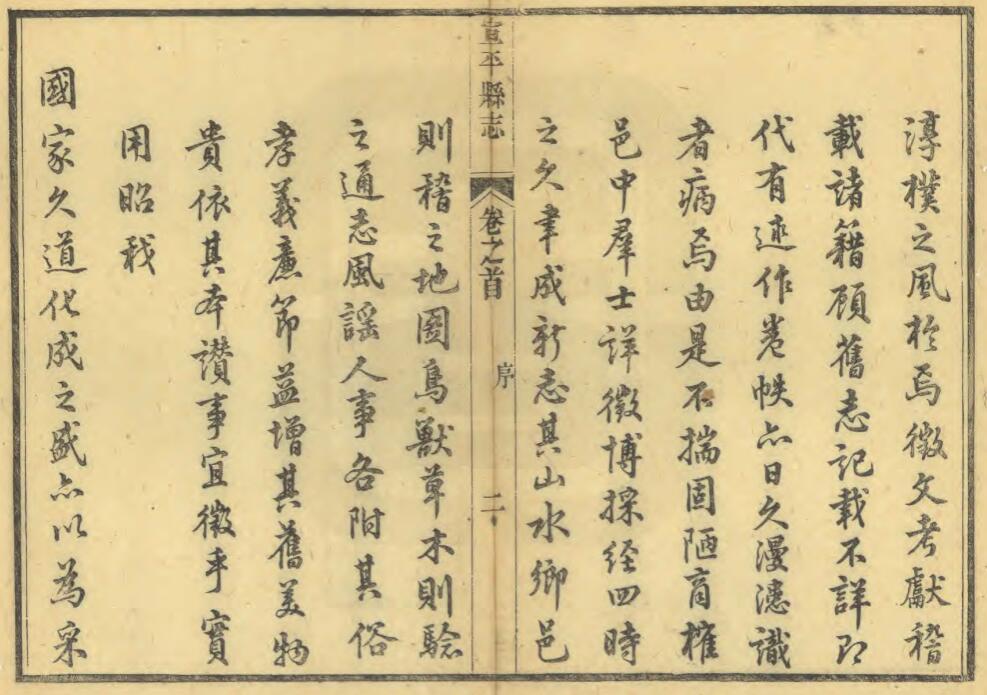 淳樸之風於焉徵文考獻稽
載諸籍顧舊志記載不詳即
代有述作卷帙亦日久漫漶識
者病焉由是不揣固陋商榷
邑中羣士詳徵博採經四時
之久聿成新志其山水鄉邑
宣平縣志
卷之首
序
二
則稽之地圖鳥獸草木則驗
之通志風謠人事各附其俗
孝義廉節益增其舊美物
貴依其本讚事宜徵乎實
用昭我
國家久道化成之盛亦以為采